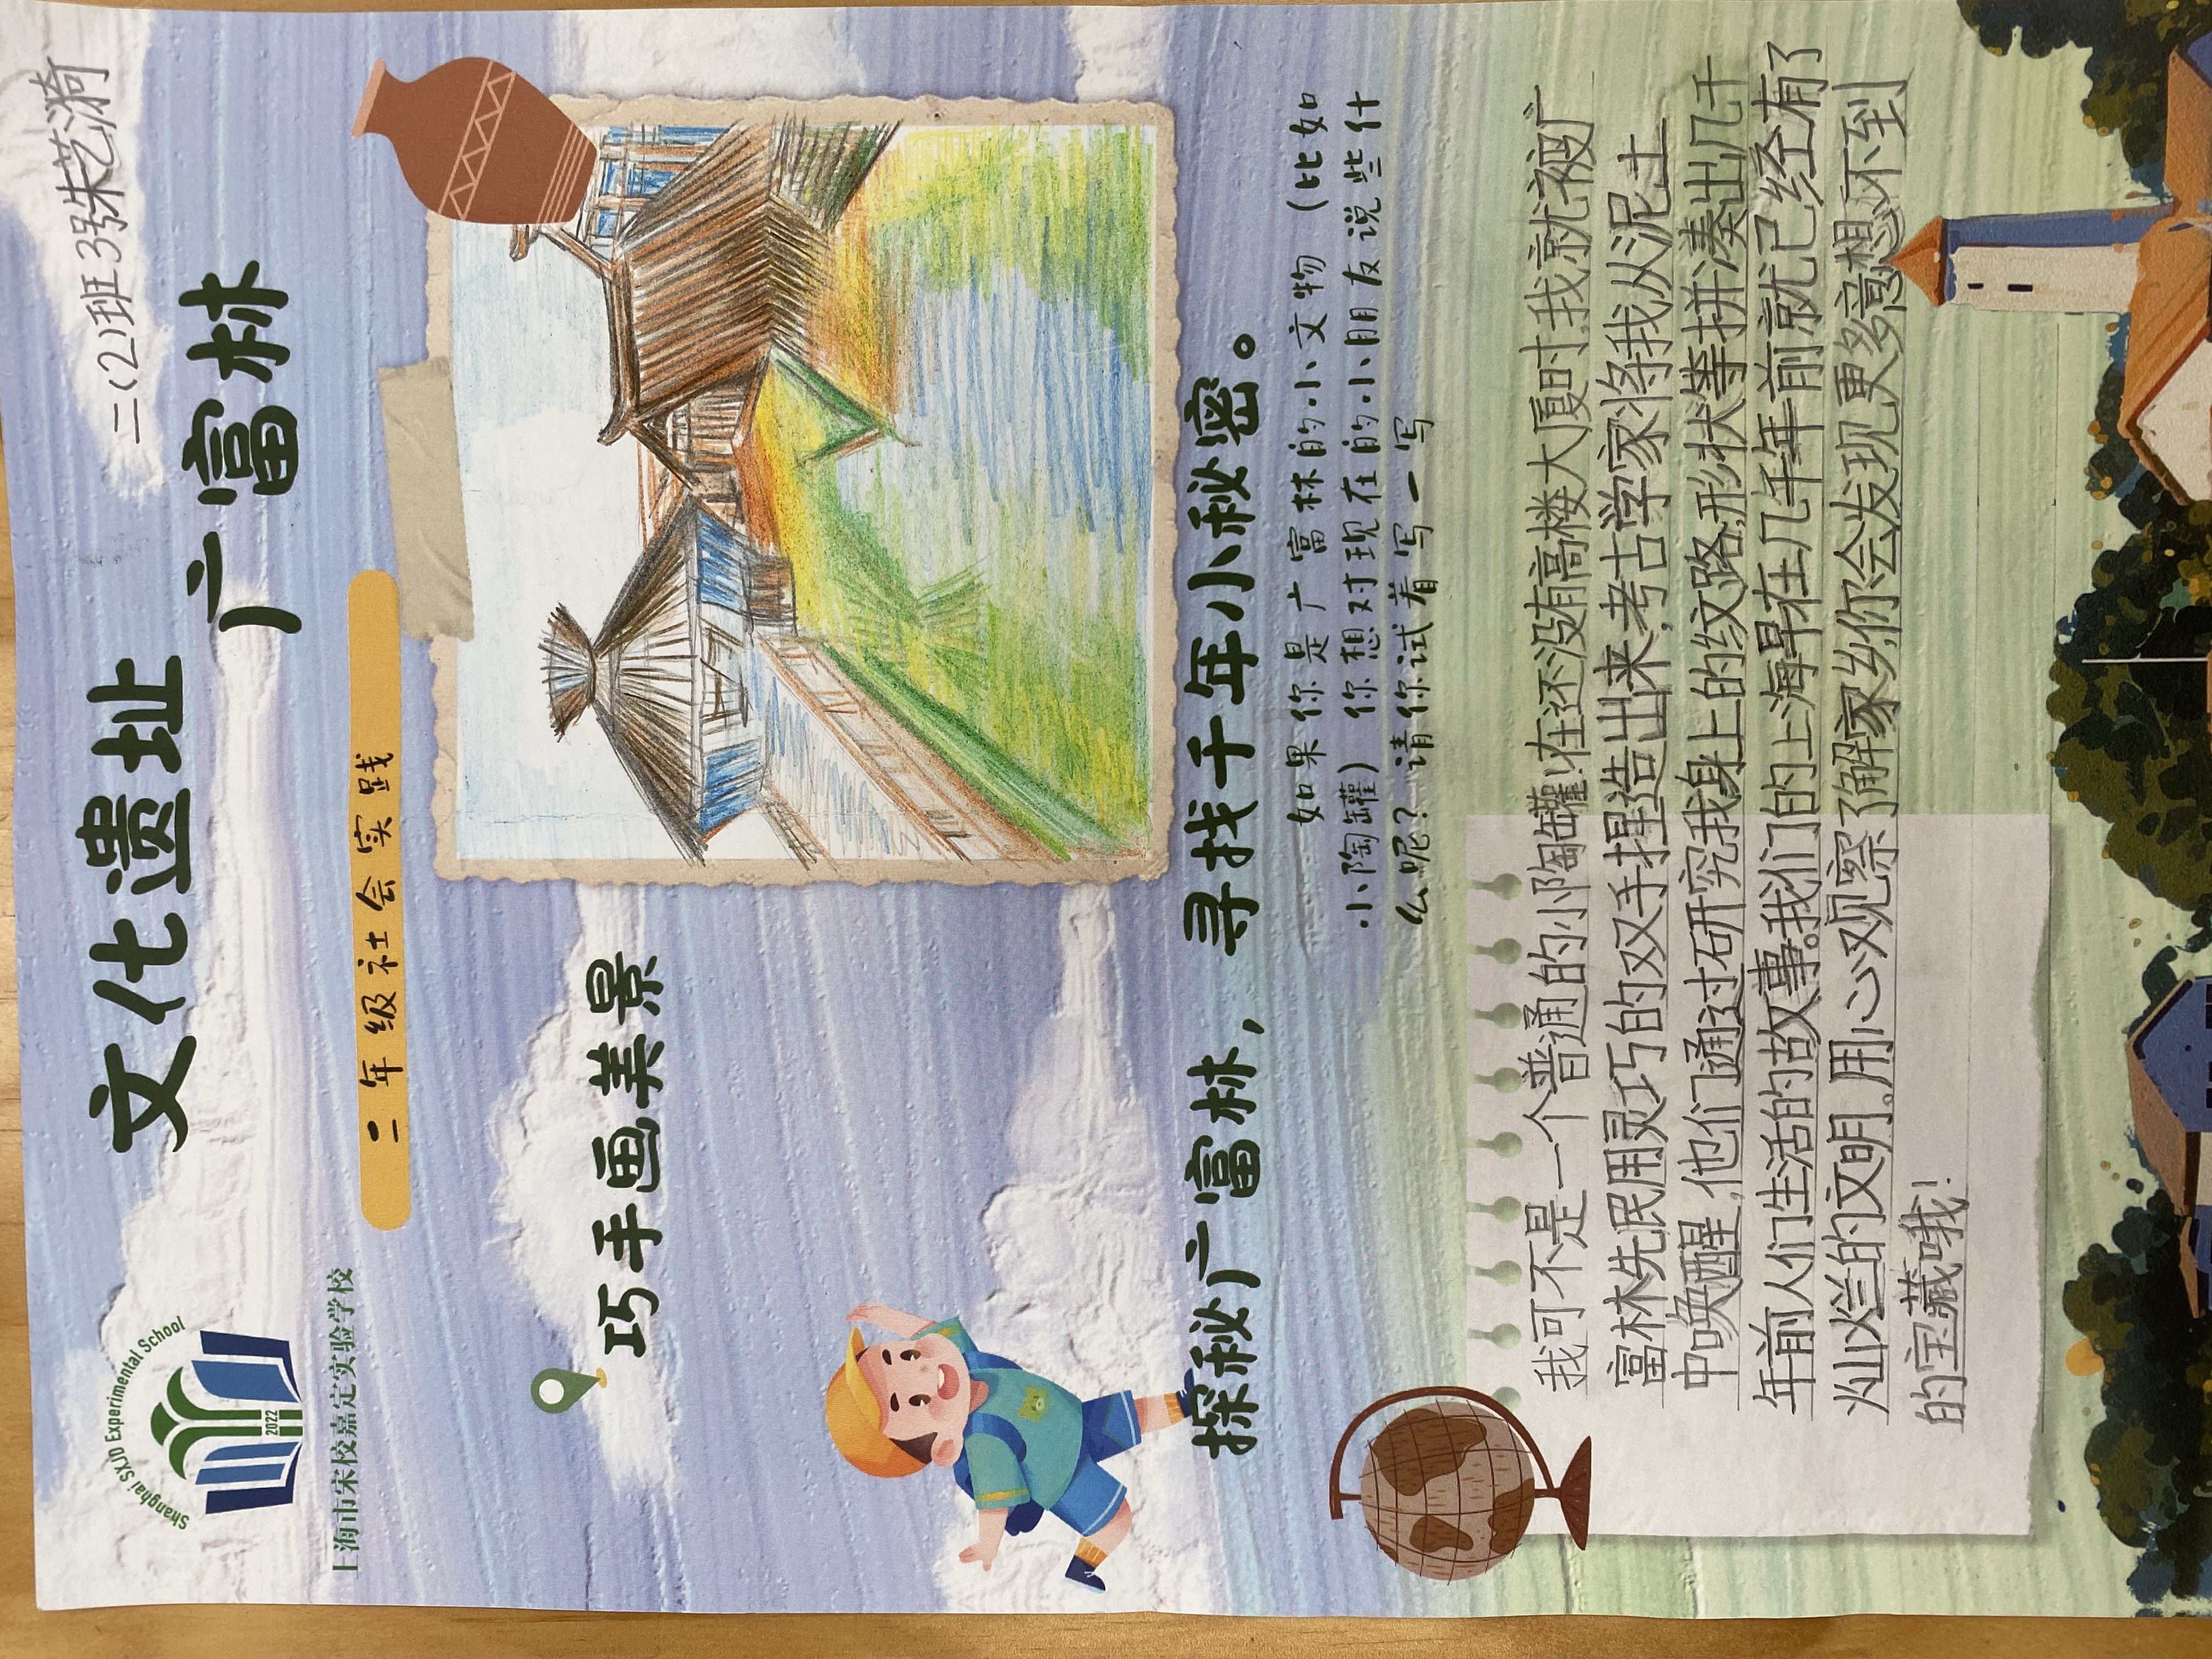 二(2)班3号朱艺漪
Shanghai SXJD Experimental School
2022
上海市宋校嘉定实验学校
文化遗址
广富林
二年级社会实践
巧手画美景
探秘广富林，寻找千年小秘密。
如果你是广富林的小文物（比如
小陶罐）你想对现在的小朋友说些什
么呢？请你试着写一写
我可不是一个普通的小陶罐!在还没有高楼大厦时,我就被广
富林先民用灵巧的双手捏造出来,考古学家将我从泥土
中唤醒,他们通过研究我身上的纹路,形状等拼凑出几千
年前人们生活的故事。我们的上海早在几千年前就已经有了
灿烂的文明。用心观察了解家乡,你会发现更多意想不到
的宝藏哦!